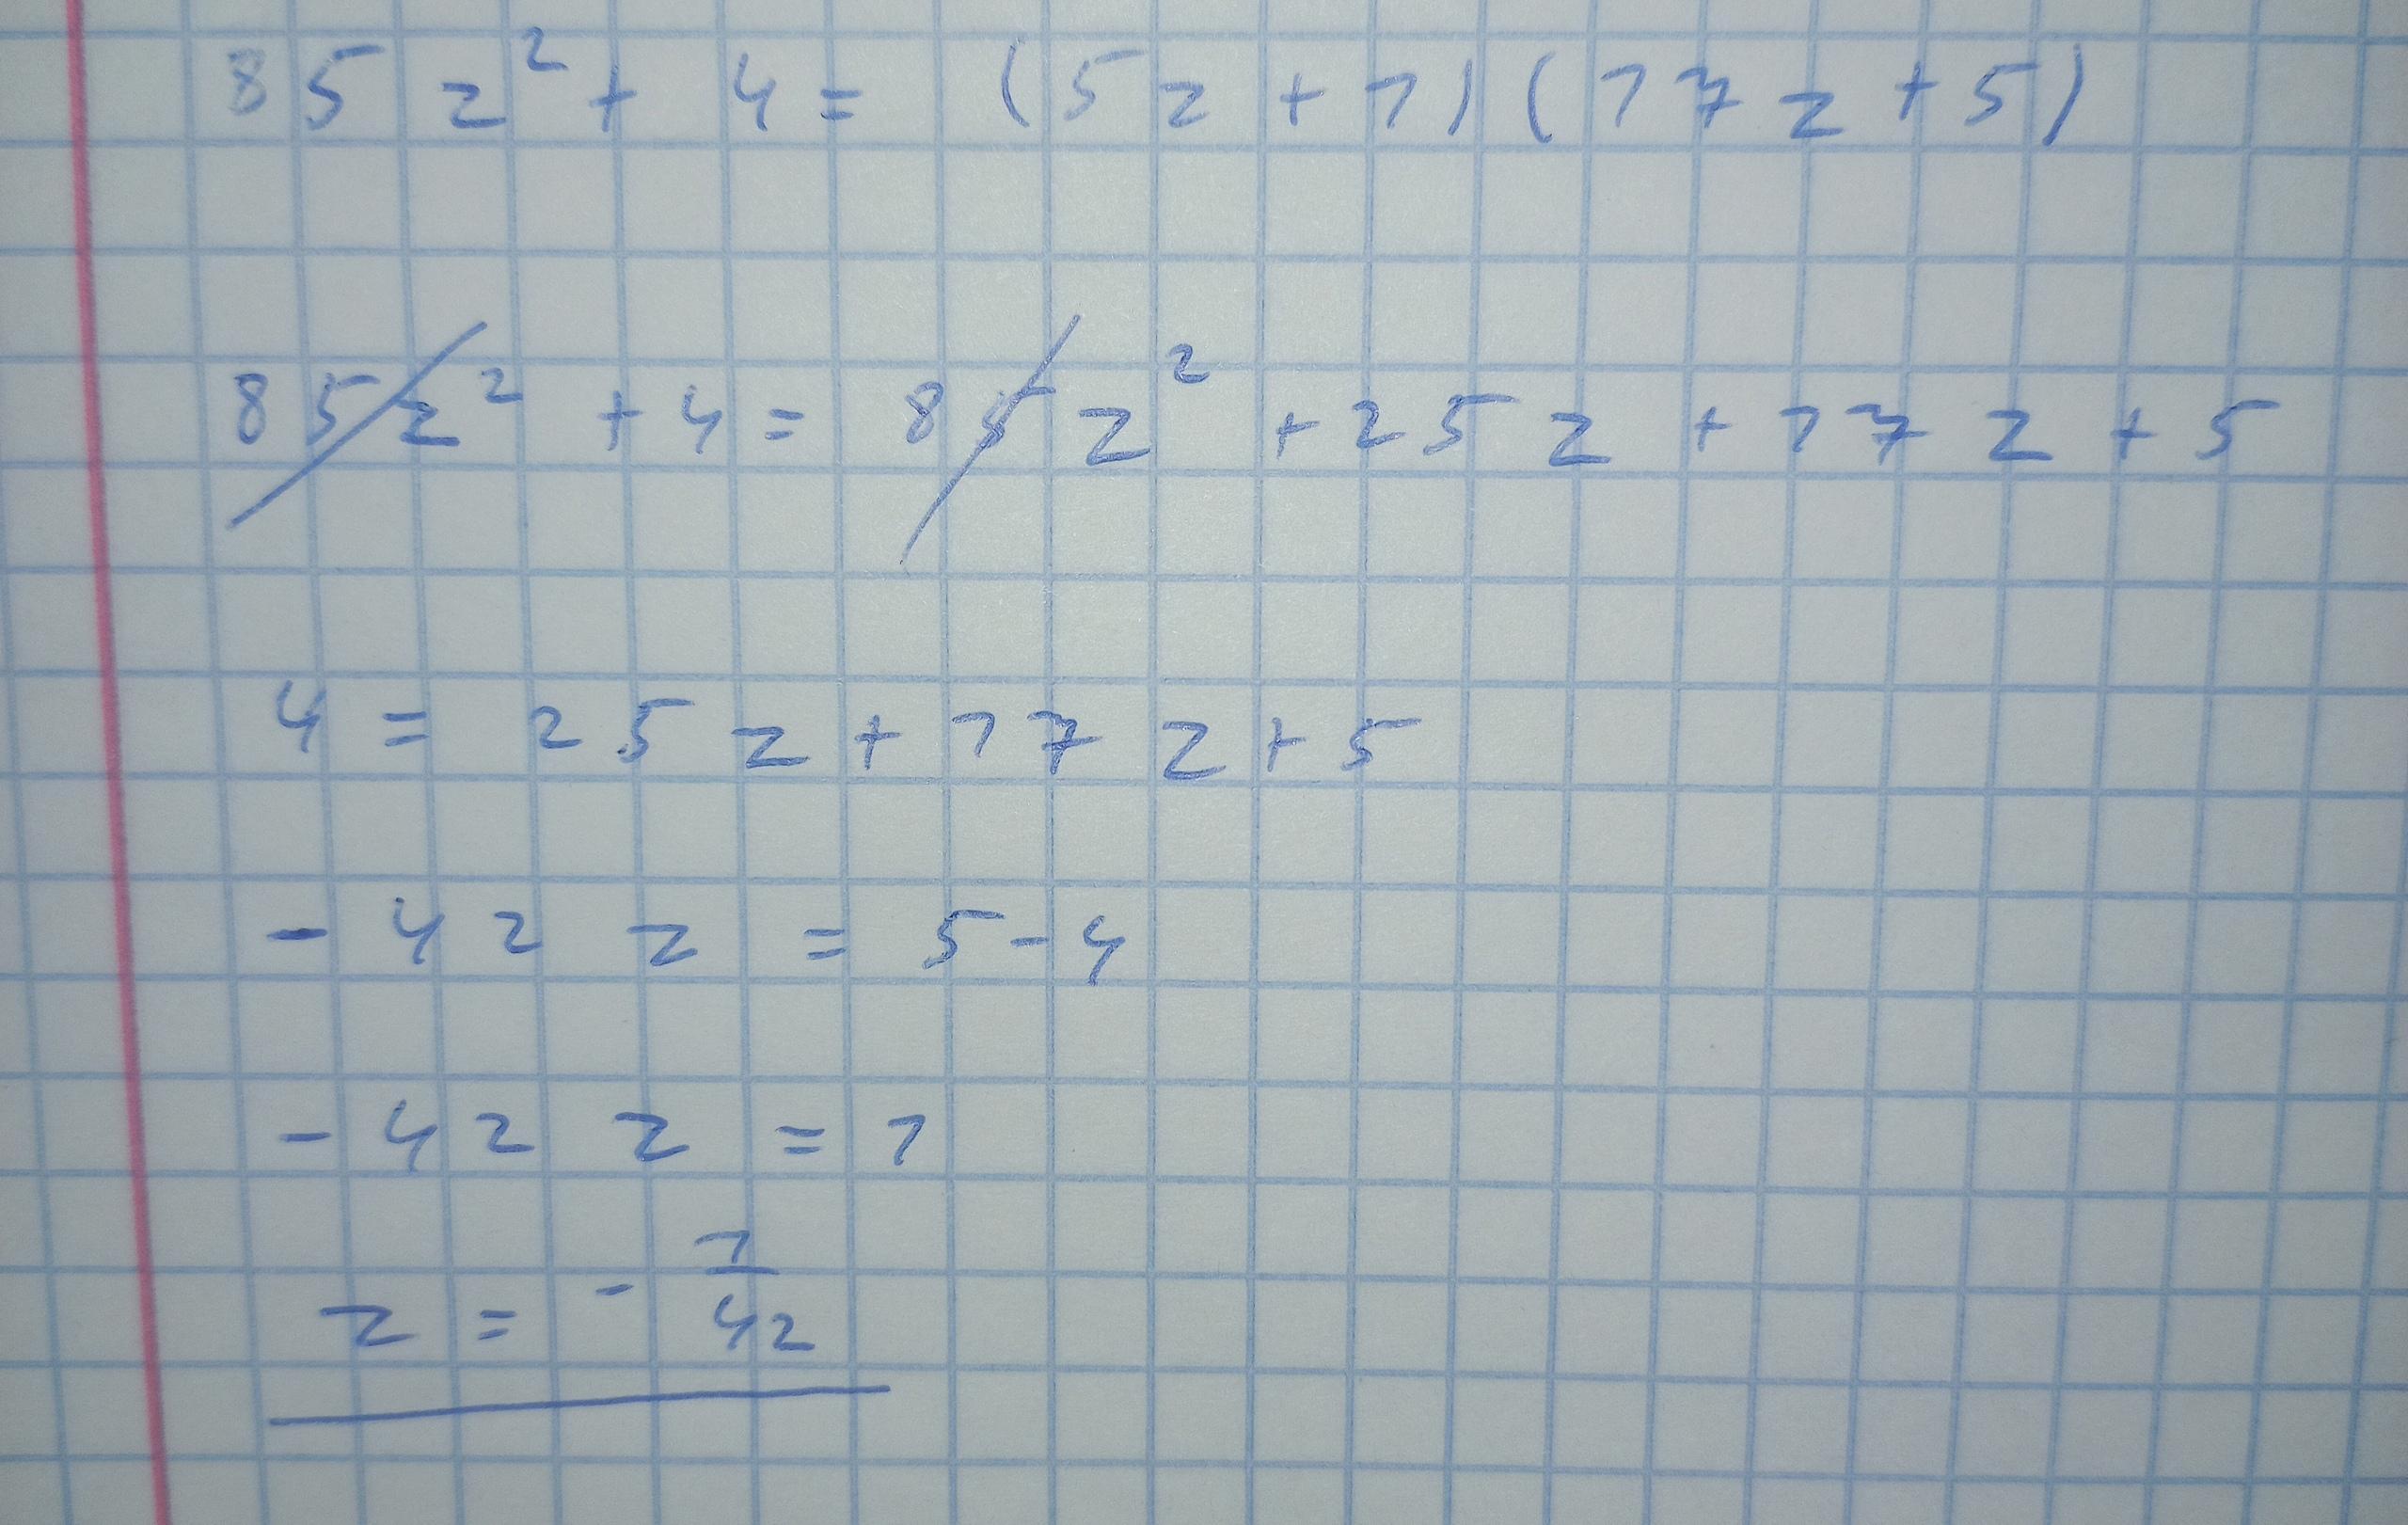 85z² + 4 = (5z + 1)(17z + 5)
85z² + 4 = 85z² + 25z + 17z + 5
4 = 25z + 17z + 5
- 42z = 5 - 4
- 42z = 1
z = - 1/42